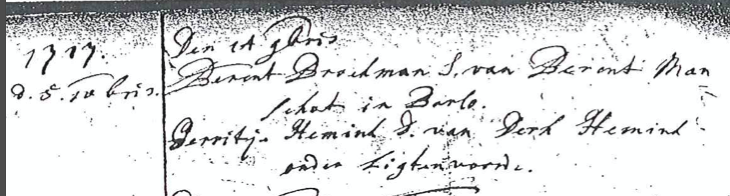 1717.
d. 5. 10bris.
Den 14 9bris
Berent Broekman S. van Berent Man
schot in Barlo.
Gerritje Hemink D. van Derk Hemink
onder Ligtenvoorde.